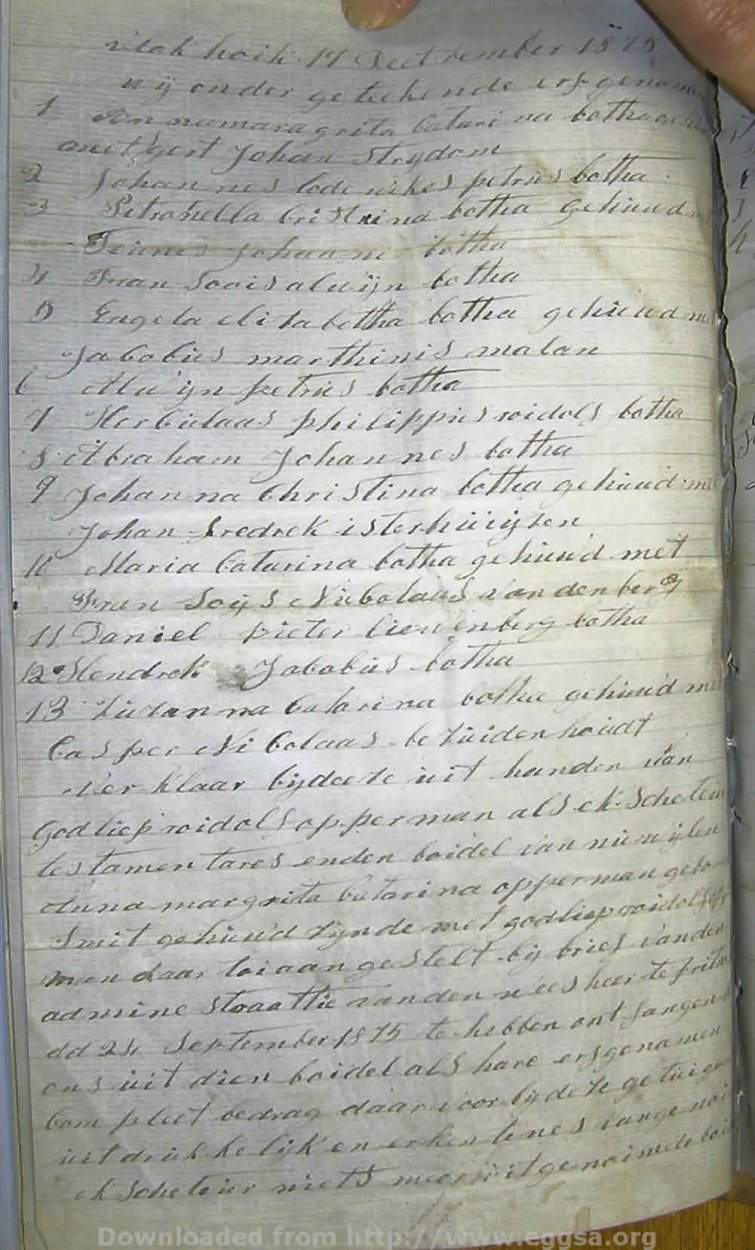 vlak hoik 17 Sectbember 1875
wij onder geteekende erfgenamen
1 Annamaragrita Catarina botha
met gert Johan Strydom
2 Johannes lodewikes petrus botha
3 Petronella Cristina botha gehuwd
Teunes Johannes botha
4 Fran Soois alwijn botha
5 Engela elisabettha botha gehuwd met
Jakobus marthinis malan
6 Alwijn petrus botha
7 Herculaas philippus roidolf botha
8 Abraham Johannes botha
9 Johanna Christina botha gehuwd met
Johan fredrek isterhuijsen
10 Maria Catarina botha gehuwd met
Fran Soijs Nicolaas van den berg
11 Daniel pieter liewenberg botha
12 Hendrek Jakobus botha
13 Zuzanna Catarina botha gehuwd met
Casper Nicolaas bezuidenhoudt
verklaar bijdeeze uit handen van
Godliep roidolf opperman als ekscheteur
testamentares en den boidel van nu wijlen
Anna margrita Catarina opperman gebo
Smit gehuwd zijnde met godliep roidolf
man daar toi aangestelt bij brief van den
admine straattie van den weesheer te
dd 24 September 1875 te hebben ontfangen
ons uit dien boidel als hare erfgenamen
Compleet bedrag daar voor bij deze getui
uitdrukkelijk en erkentenes van ge
ekscheteur niets meer uit genoimde boi
Downloaded from http://www.eggsa.org